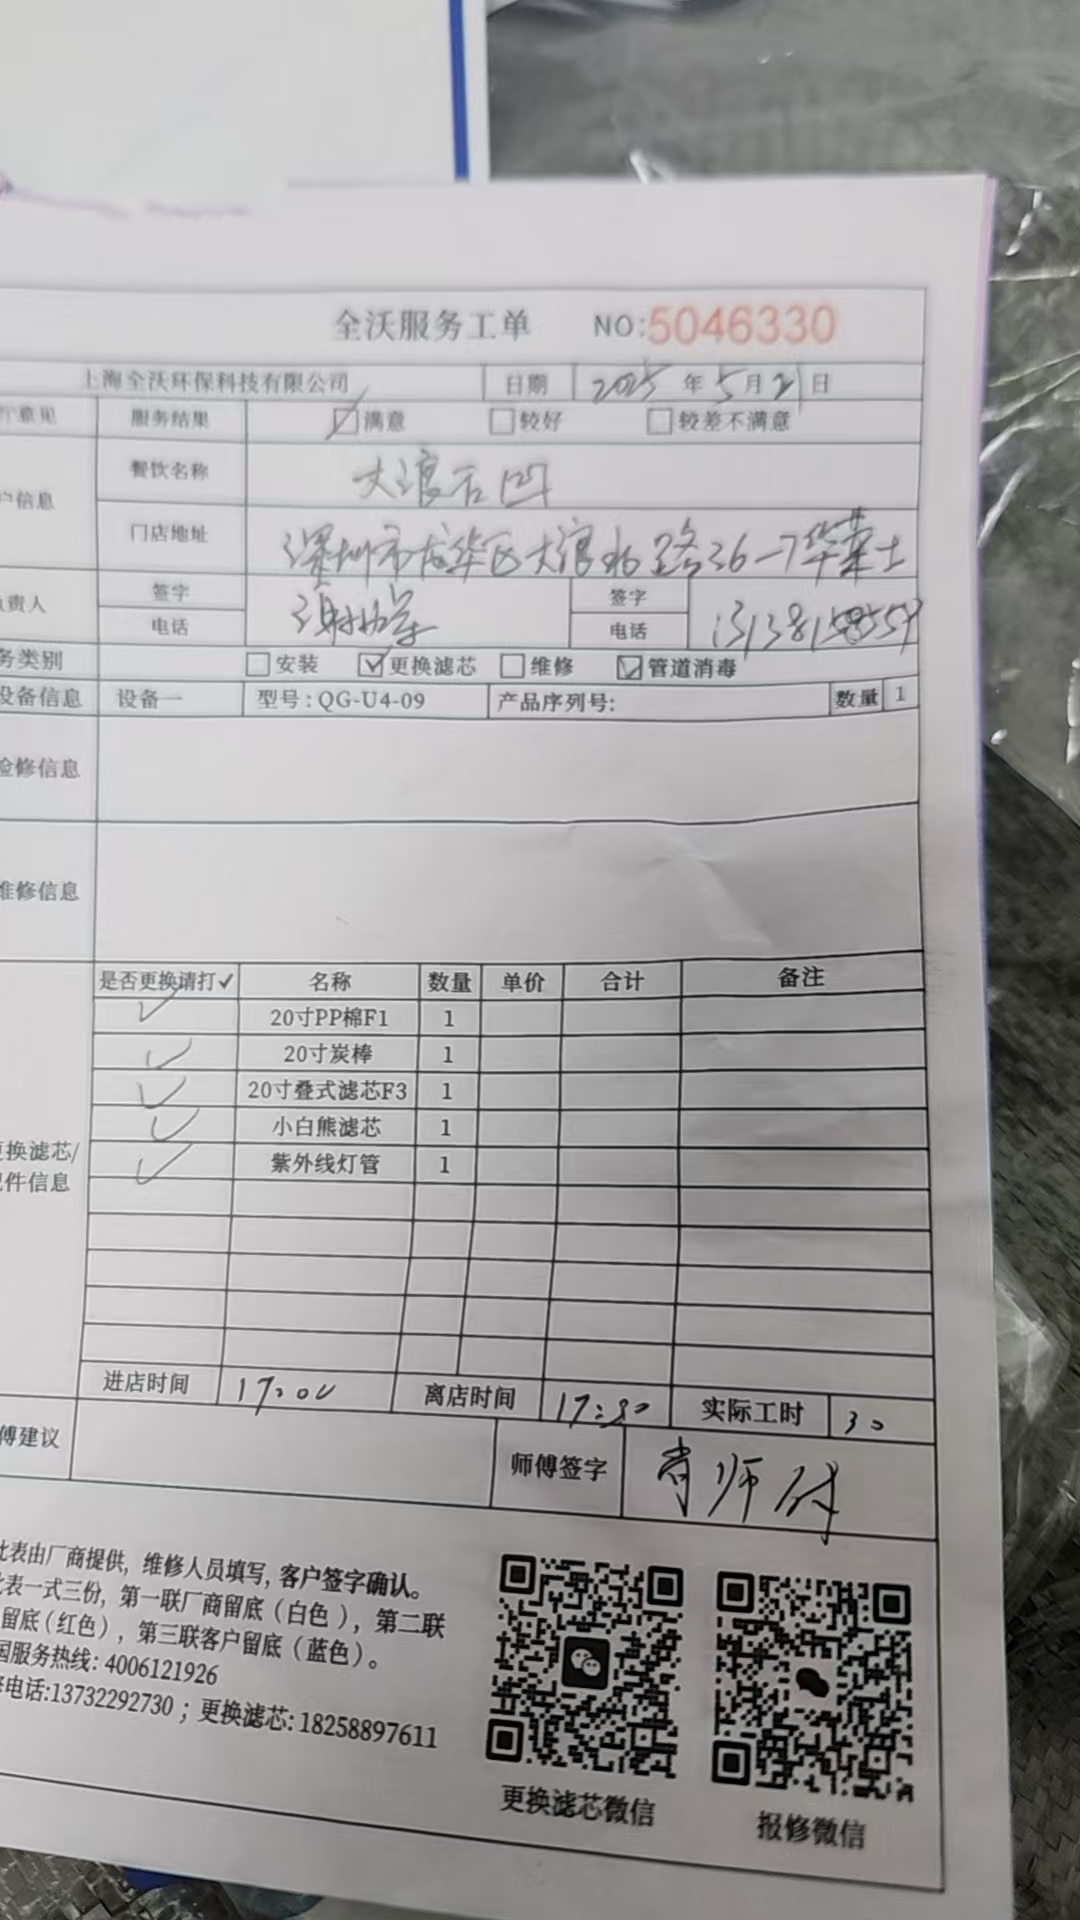 全沃服务工单 NO:5046330
上海全沃环保科技有限公司 日期 2025年5月21日
意见 服务结果 满意 较好 较差不满意
户信息 餐饮名称 大浪石凹
门店地址 深圳市龙华区大浪北路36-7华莱士
负责人 签字 签字
电话 电话
务类别 安装 更换滤芯 维修 管道消毒
设备信息 设备一 型号:QG-U4-09 产品序列号: 数量 1
检修信息
维修信息
是否更换请打✓ 名称 数量 单价 合计 备注
✓ 20寸PP棉F1 1
✓ 20寸炭棒 1
✓ 20寸叠式滤芯F3 1
✓ 小白熊滤芯 1
✓ 紫外线灯管 1
更换滤芯/
配件信息
进店时间 17:00 离店时间 17:30 实际工时 30
傅建议 师傅签字 肖师傅
此表由厂商提供,维修人员填写,客户签字确认。
此表一式三份,第一联厂商留底(白色),第二联
留底(红色),第三联客户留底(蓝色)。
国服务热线:4006121926
电话:13732292730;更换滤芯:18258897611
更换滤芯微信 报修微信